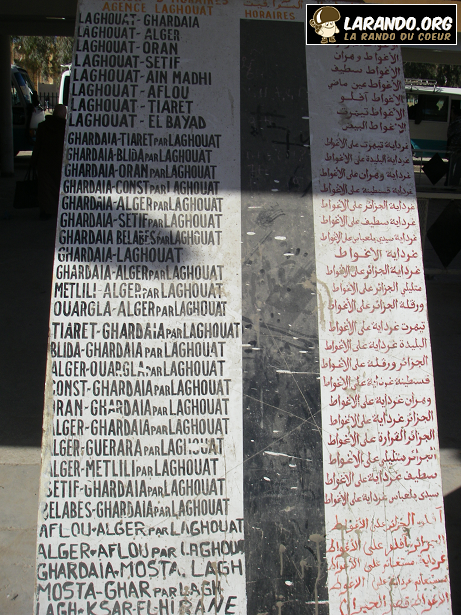 LARANDO.ORG
LA RANDO DU COEUR
HORAIRES
AGENCE LAGHOUAT
HORAIRES
LAGHOUAT-GHARDAIA
LAGHOUAT-ALGER
LAGHOUAT-ORAN
LAGHOUAT-SETIF
LAGHOUAT-AIN MADHI
LAGHOUAT-AFLOU
LAGHOUAT-TIARET
LAGHOUAT-EL BAYAD
GHARDAIA-TIARET PAR LAGHOUAT
GHARDAIA-BLIDA PAR LAGHOUAT
GHARDAIA-ORAN PAR LAGHOUAT
GHARDAIA-CONST PAR LAGHOUAT
GHARDAIA-ALGER PAR LAGHOUAT
GHARDAIA-SETIF PAR LAGHOUAT
GHARDAIA BELABES PAR LAGHOUAT
GHARDAIA-LAGHOUAT
GHARDAIA-ALGER PAR LAGHOUAT
METLILI-ALGER PAR LAGHOUAT
OUARGLA-ALGER PAR LAGHOUAT
TIARET-GHARDAIA PAR LAGHOUAT
BLIDA-GHARDAIA PAR LAGHOUAT
ALGER-OUARGLA PAR LAGHOUAT
CONST-GHARDAIA PAR LAGHOUAT
ORAN-GHARDAIA PAR LAGHOUAT
ALGER-GHARDAIA PAR LAGHOUAT
ALGER-GUERARA PAR LAGHOUAT
ALGER-METLILI PAR LAGHOUAT
SETIF-GHARDAIA PAR LAGHOUAT
BELABES-GHARDAIA PAR LAGHOUAT
AFLOU-ALGER PAR LAGHOUAT
ALGER-AFLOU PAR LAGHOUAT
GHARDAIA-MOSTA. LAGH
MOSTA-GHAR PAR LAGH
LAGH-KSAR-EL-HIRANE
الأغواط وهران
الأغواط سطيف
الأغواط عين ماضي
الأغواط آفلو
الأغواط تيهرت
الأغواط البيض
غرداية تيهرت على الأغواط
غرداية البليدة على الأغواط
غرداية وهران على الأغواط
غرداية قسنطينة على الأغواط
غرداية الجزائر على الأغواط
غرداية سطيف على الأغواط
غرداية سيدي بلعباس على الأغواط
غرداية الأغواط
غرداية الجزائر على الأغواط
متليلي الجزائر على الأغواط
ورقلة الجزائر على الأغواط
تيهرت غرداية على الأغواط
البليدة غرداية على الأغواط
الجزائر ورقلة على الأغواط
قسنطينة غرداية على الأغواط
وهران غرداية على الأغواط
الجزائر غرداية على الأغواط
الجزائر القرارة على الأغواط
الجزائر متليلي على الأغواط
سطيف غرداية على الأغواط
سيدي بلعباس غرداية على الأغواط
آفلو الجزائر على الأغواط
الجزائر آفلو على الأغواط
غرداية مستغانم على الأغواط
مستغانم غرداية على الأغواط
الأغواط قصر الحيران